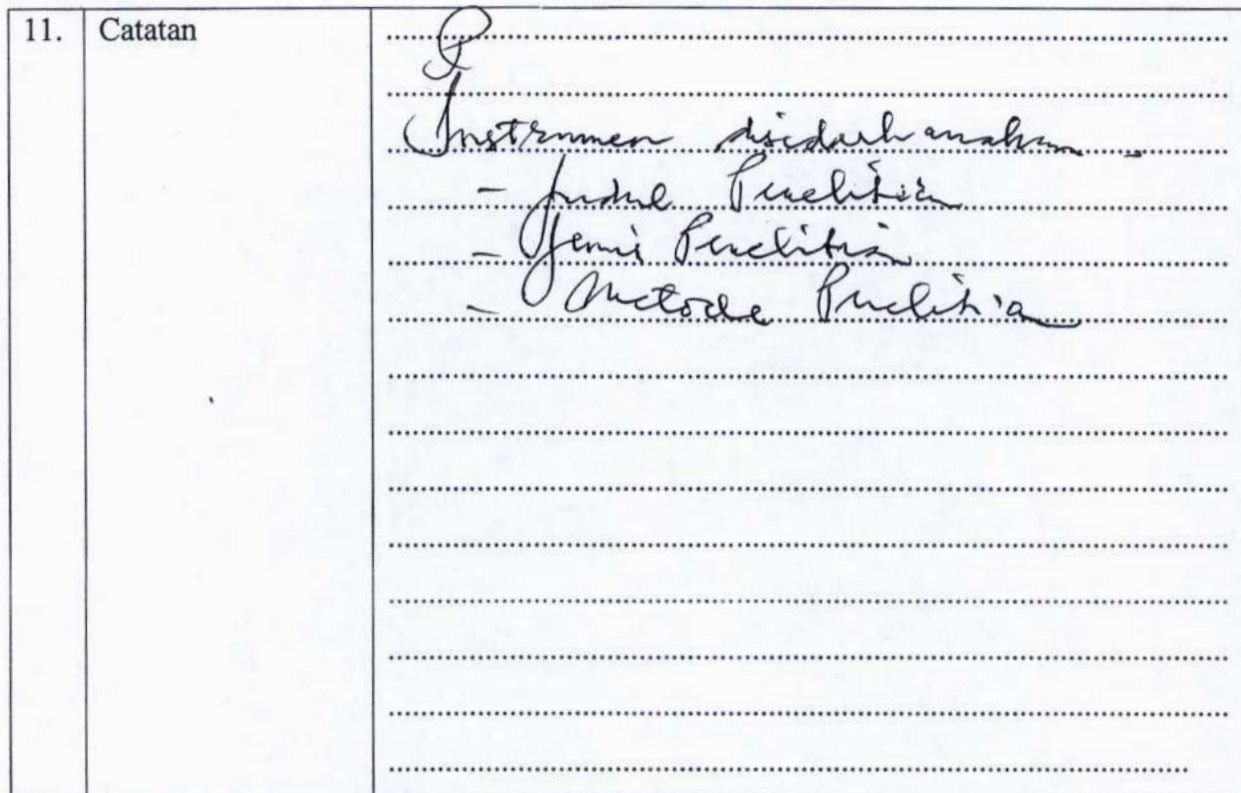 11. Catatan
Instrumen disederhanakan -
- Judul Penelitian
- Jenis Penelitian
- Metode Penelitian